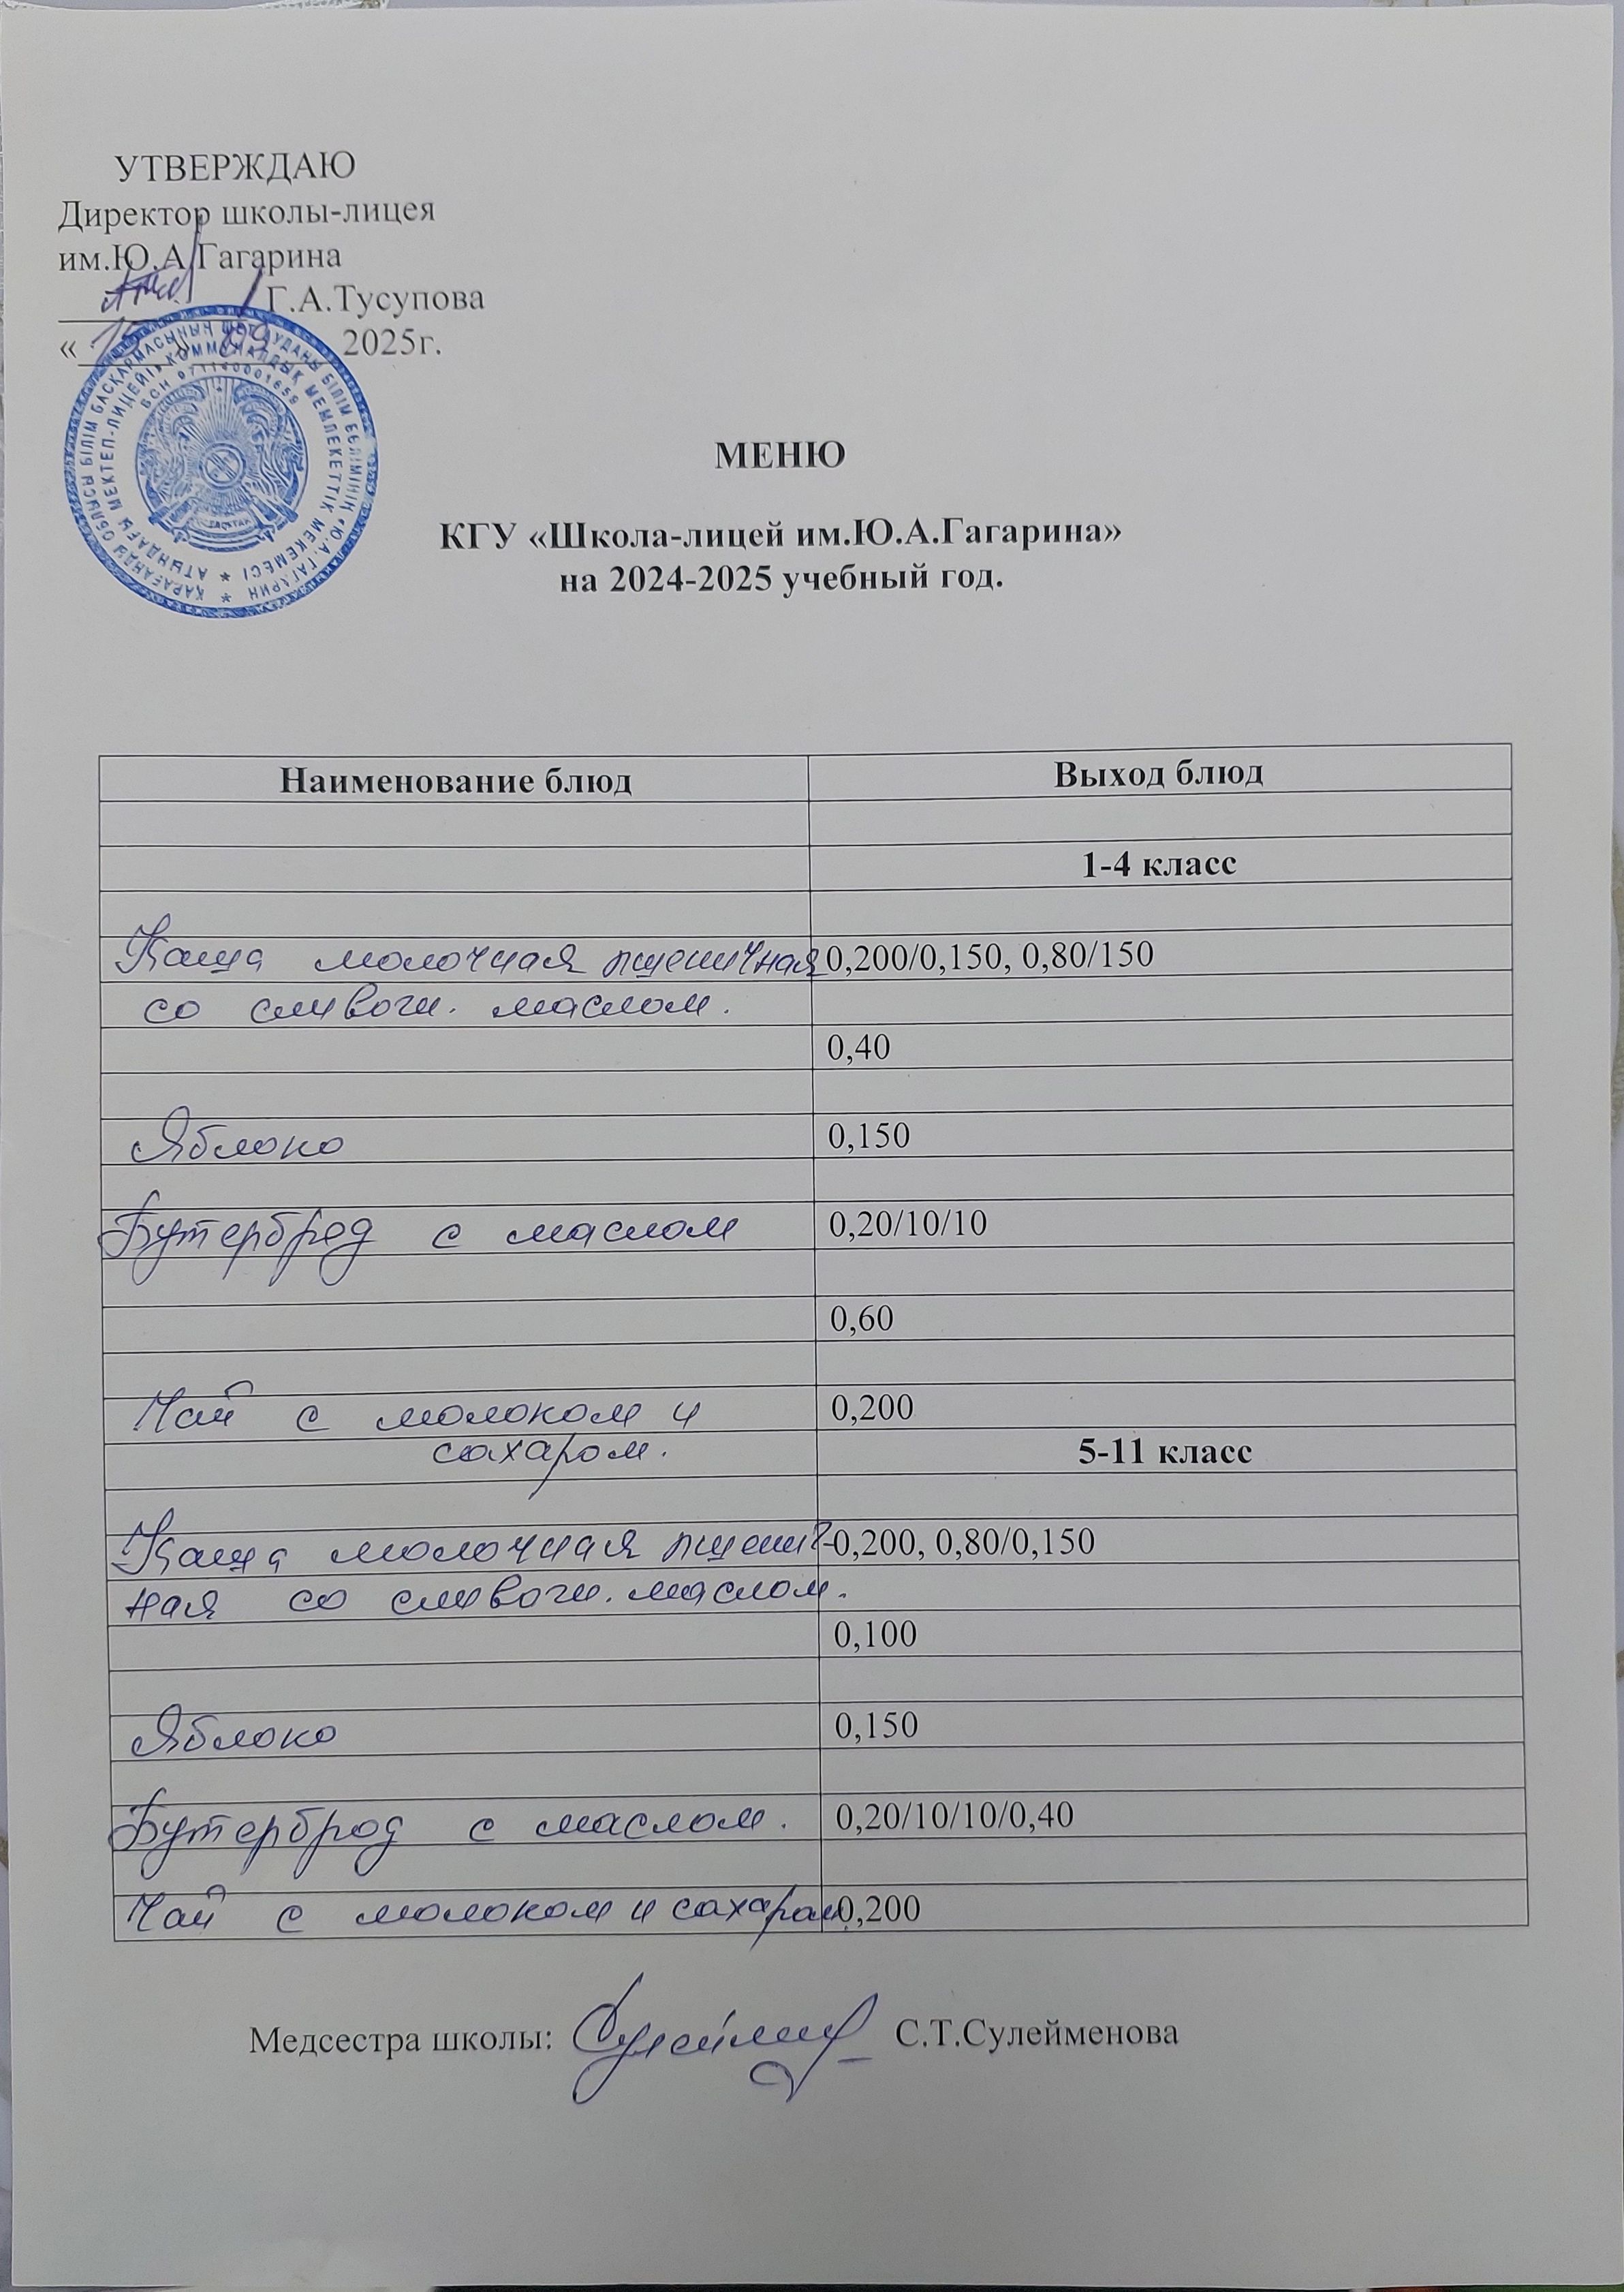 УТВЕРЖДАЮ
Директор школы-лицея
им.Ю.А.Гагарина
Г.А.Тусупова
« 15 » 09 2025г.
ҚАРАҒАНДЫ ОБЛЫСЫ БІЛІМ БАСҚАРМАСЫНЫҢ ШЕТ АУДАНЫ БІЛІМ БӨЛІМІНІҢ «Ю.А.ГАГАРИН
АТЫНДАҒЫ МЕКТЕП-ЛИЦЕЙІ» КОММУНАЛДЫҚ МЕМЛЕКЕТТІК МЕКЕМЕСІ
БСН 971140001659
МЕНЮ
КГУ «Школа-лицей им.Ю.А.Гагарина»
на 2024-2025 учебный год.
Наименование блюд Выход блюд
1-4 класс
Каша молочная пшеничная 0,200/0,150, 0,80/150
со сливочн. маслом.
0,40
Яблоко 0,150
Бутерброд с маслом 0,20/10/10
0,60
Чай с молоком и 0,200
сахаром. 5-11 класс
Каша молочная пшенич- 0,200, 0,80/0,150
ная со сливочн. маслом.
0,100
Яблоко 0,150
Бутерброд с маслом. 0,20/10/10/0,40
Чай с молоком и сахаром. 0,200
Медсестра школы: С.Т.Сулейменова